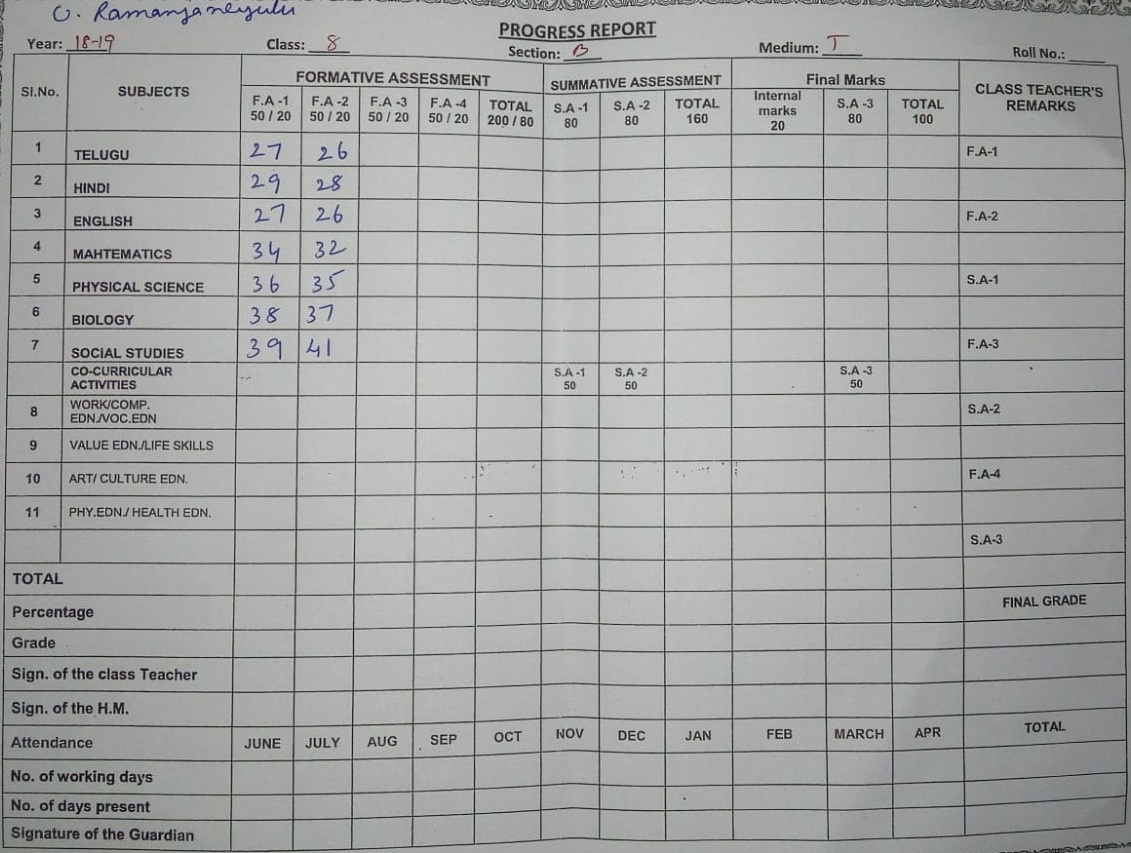 O. Ramanjaneyulu
PROGRESS REPORT
Year: 18-19 Class: 8 Section: B Medium: T Roll No.:
Sl.No. SUBJECTS FORMATIVE ASSESSMENT SUMMATIVE ASSESSMENT Final Marks CLASS TEACHER'S REMARKS
F.A -1 50 / 20 F.A -2 50 / 20 F.A -3 50 / 20 F.A -4 50 / 20 TOTAL 200 / 80 S.A -1 80 S.A -2 80 TOTAL 160 Internal marks 20 S.A -3 80 TOTAL 100
1 TELUGU 27 26 F.A-1
2 HINDI 29 28
3 ENGLISH 27 26 F.A-2
4 MAHTEMATICS 34 32
5 PHYSICAL SCIENCE 36 35 S.A-1
6 BIOLOGY 38 37
7 SOCIAL STUDIES 39 41 F.A-3
CO-CURRICULAR ACTIVITIES S.A -1 50 S.A -2 50 S.A -3 50
8 WORK/COMP. EDN./VOC.EDN S.A-2
9 VALUE EDN./LIFE SKILLS
10 ART/ CULTURE EDN. F.A-4
11 PHY.EDN./ HEALTH EDN.
S.A-3
TOTAL
Percentage FINAL GRADE
Grade
Sign. of the class Teacher
Sign. of the H.M.
Attendance JUNE JULY AUG SEP OCT NOV DEC JAN FEB MARCH APR TOTAL
No. of working days
No. of days present
Signature of the Guardian